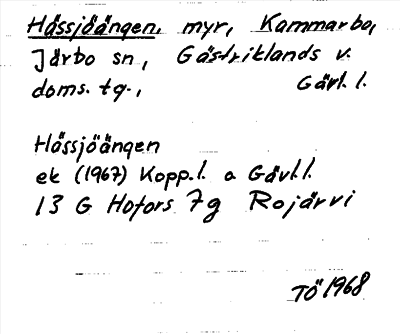 Hässjöängen, myr, Kammarbo,
Järbo sn, Gästriklands v.
doms. tg., Gävl. l.
Hässjöängen
ek (1967) Kopp.l. o Gävl.l.
13 G Hofors 7g Rojärvi
TÖ 1968